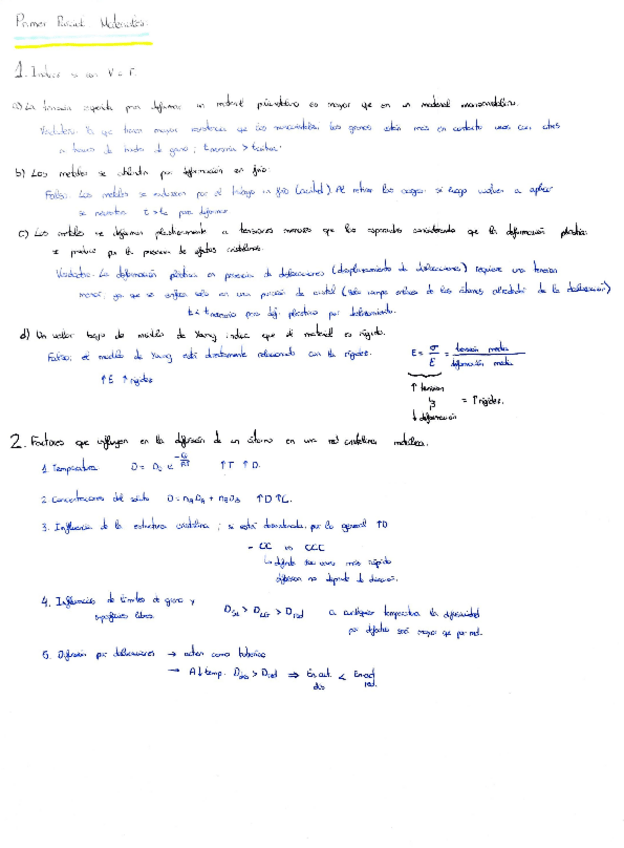 Primer Parcial Materiales.
1. Indicar si son V o F.
a) La tensión requerida para deformar un material policristalino es mayor que en un material monocristalino.
Verdadero. Ya que tienen mayor resistencia que los monocristales, los granos están más en contacto unos con otros
a través de bordes de grano;
b) Los metales se ablandan por deformación en frío.
Falso. Los metales se endurecen por el trabajo en frío (acritud). Al retirar las cargas si luego vuelven a aplicar
se necesitan τ > τ₀ para deformar
c) Los metales se deforman plásticamente a tensiones menores que las esperadas considerando que la deformación plástica
se produce por la presencia de defectos cristalinos.
Verdadero. La deformación plástica en presencia de dislocaciones (desplazamiento de dislocaciones) requiere una tensión
menor, ya que se enfoca solo en una porción de cristal (solo rompe enlaces de los átomos alrededor de la dislocación)
necesaria para def. plástica por deslizamiento.
d) Un valor bajo de modulo de Young indica que el material es rígido.
Falso; el modulo de Young está directamente relacionado con la rigidez.
E = σ/ε = tensión media / deformación media
↑E ↑rigidez
↑ tensión
y = ↑rigidez.
↓ deformación
2. Factores que influyen en la difusión de un átomo en una red cristalina metálica.
1. Temperatura D = D₀ e^(-Q/RT) ↑T ↑D.
2. Concentraciones del soluto D = nA DA + nB DB ↑D ↑C.
3. Influencia de la estructura cristalina; si está desordenada, por lo general ↑D
- CC vs CCC
difunde tres veces más rápido
difusión no depende de dirección.
4. Influencias de límites de grano y
superficies libres. > > Dred a cualquier temperatura la difusividad
por defectos será mayor que por red.
5. Difusión por dislocaciones → actúan como tuberías
→ A↓temp. Ddis > Dred ⇒ En act. dis < En act red.